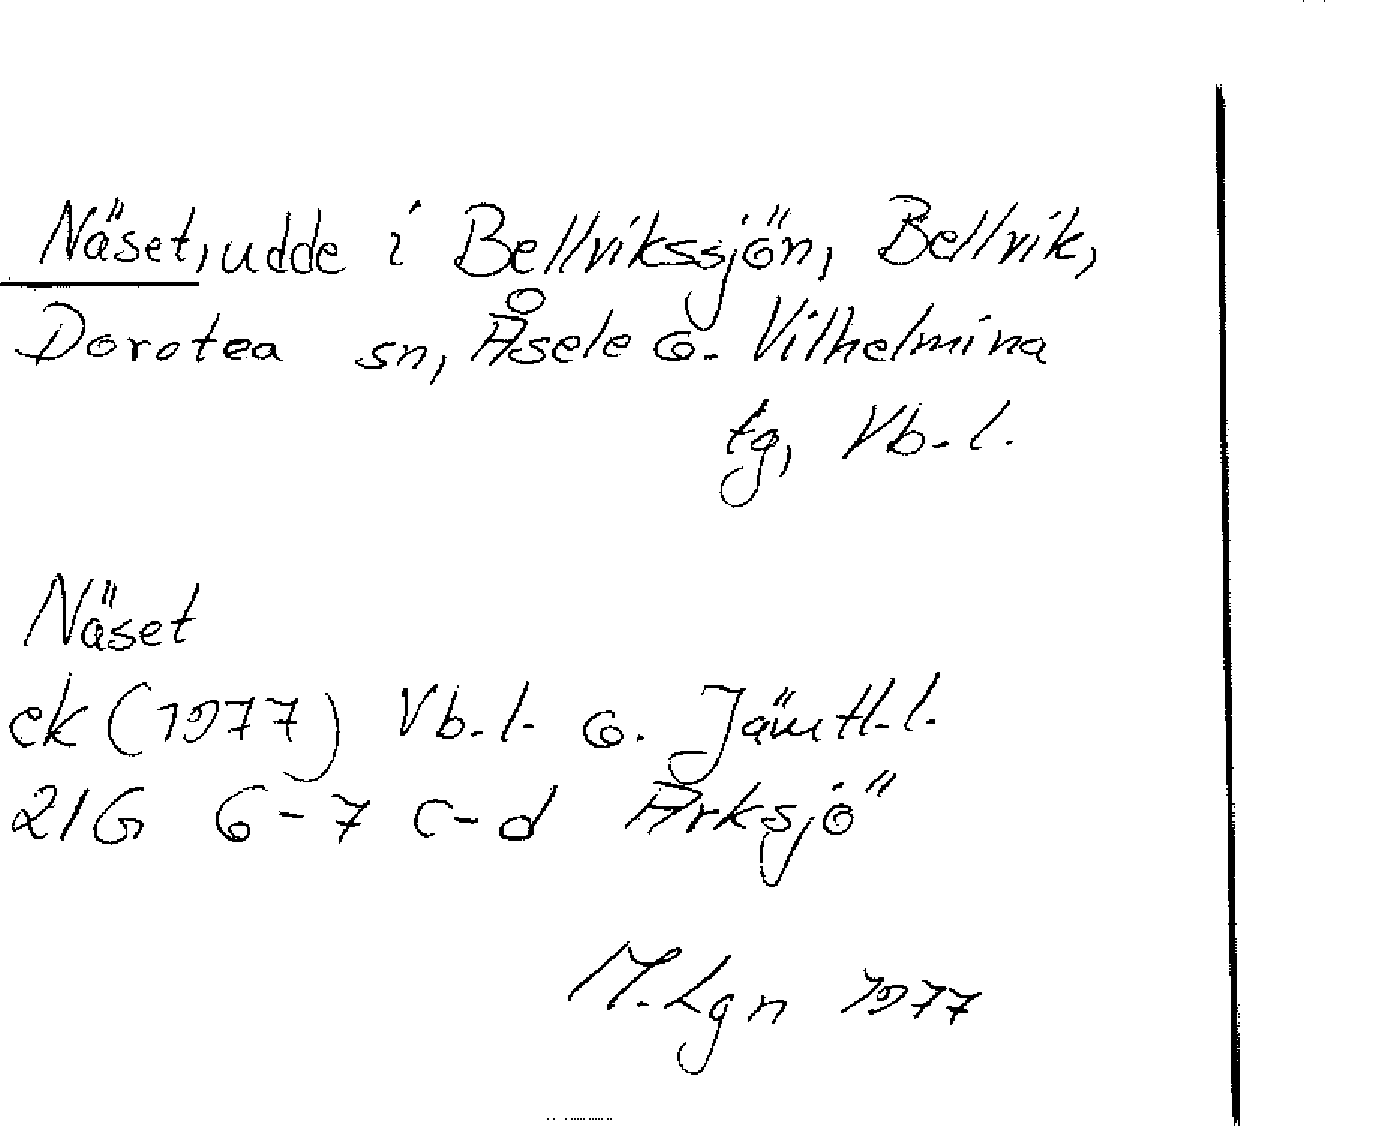 Näset, udde i Bellvikssjön, Bellvik,
Dorotea sn, Åsele o. Vilhelmina
tg, Vb. l.
Näset
ek (1977) Vb. l. o. Jämtl. l.
21G 6-7 c-d Arksjö
M. Lgn 1977